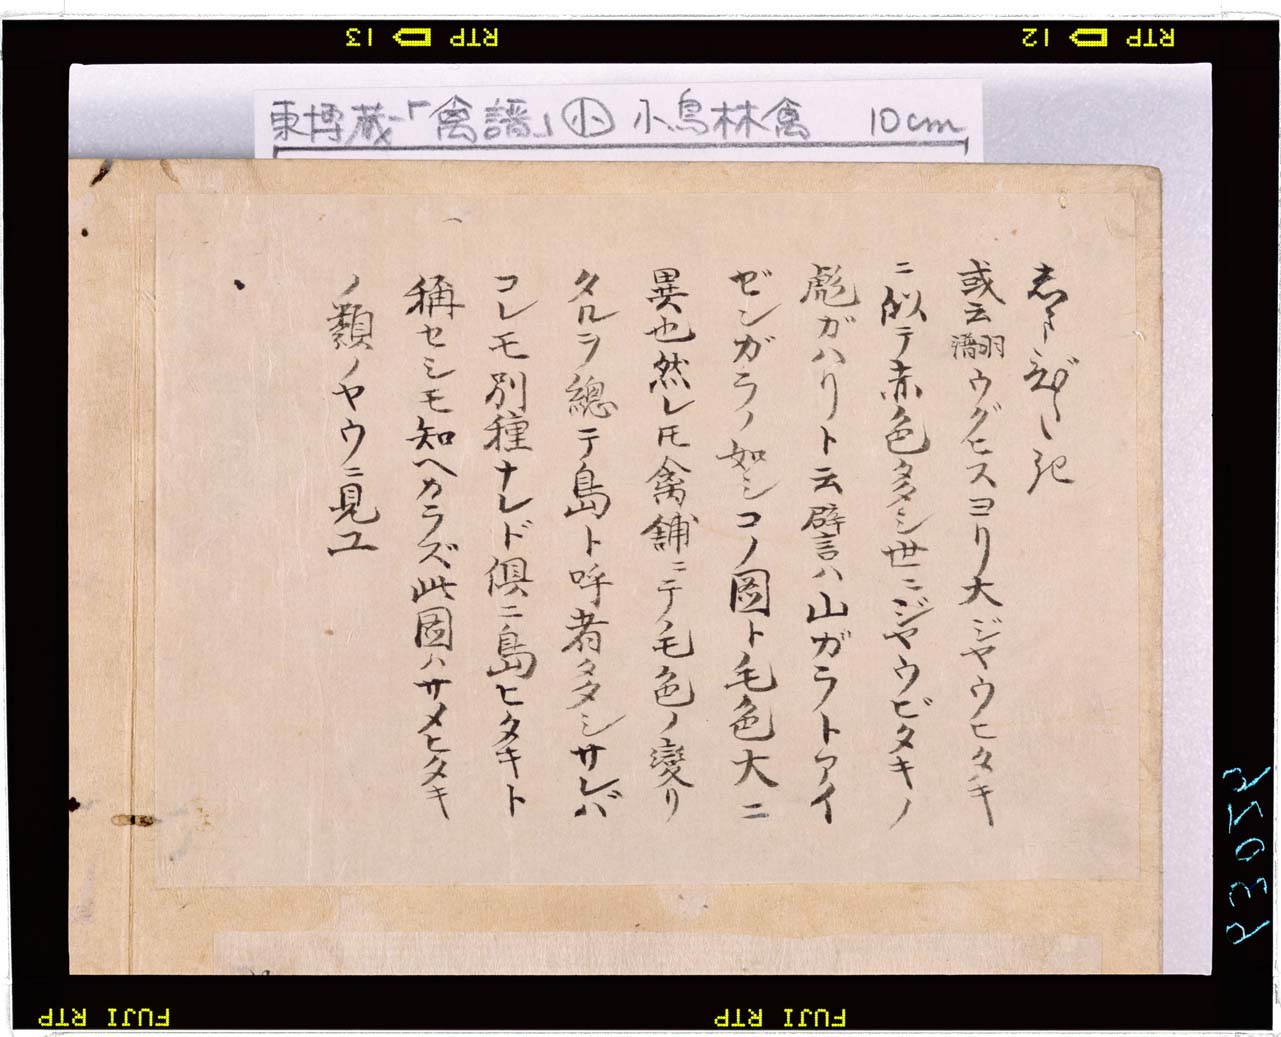 RTP 13
RTP 12
東博蔵-「禽譜」小 小鳥林禽 10cm
志まひたき
或云禽譜ウグヒスヨリ大ジヤウヒタキ
ニ似テ赤色タタシ世ニジヤウビタキノ
彪ガハリト云譬言ハ山ガラトアイ
ゼンガラノ如シコノ圖ト毛色大ニ
異也然レ𪜈禽舗ニテ毛色ノ變リ
タルヲ總テ島ト呼者タタシサレバ
コレモ別種ナレド俱ニ島ヒタキト
稱セシモ知ヘカラズ此圖ハサメヒタキ
ノ類ノヤウニ見ユ
FUJI RTP
FUJI RTP